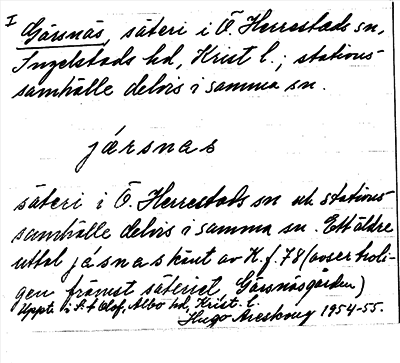 I Gärsnäs, säteri i Ö. Herrestads sn,
Ingelstads hd, Krist. l.; stations-
samhälle delvis i samma sn.
jæ̨rsnas
säteri i Ö. Herrestads sn och stations-
samhälle delvis i samma sn. Ett äldre
uttal jasnas känt av K. f. 78 (avser troli-
gen främst säteriet, Gärsnäsgården)
Uppt. i S:t Olof, Albo hd, Krist. l.
Hugo Areskoug 1954-55.